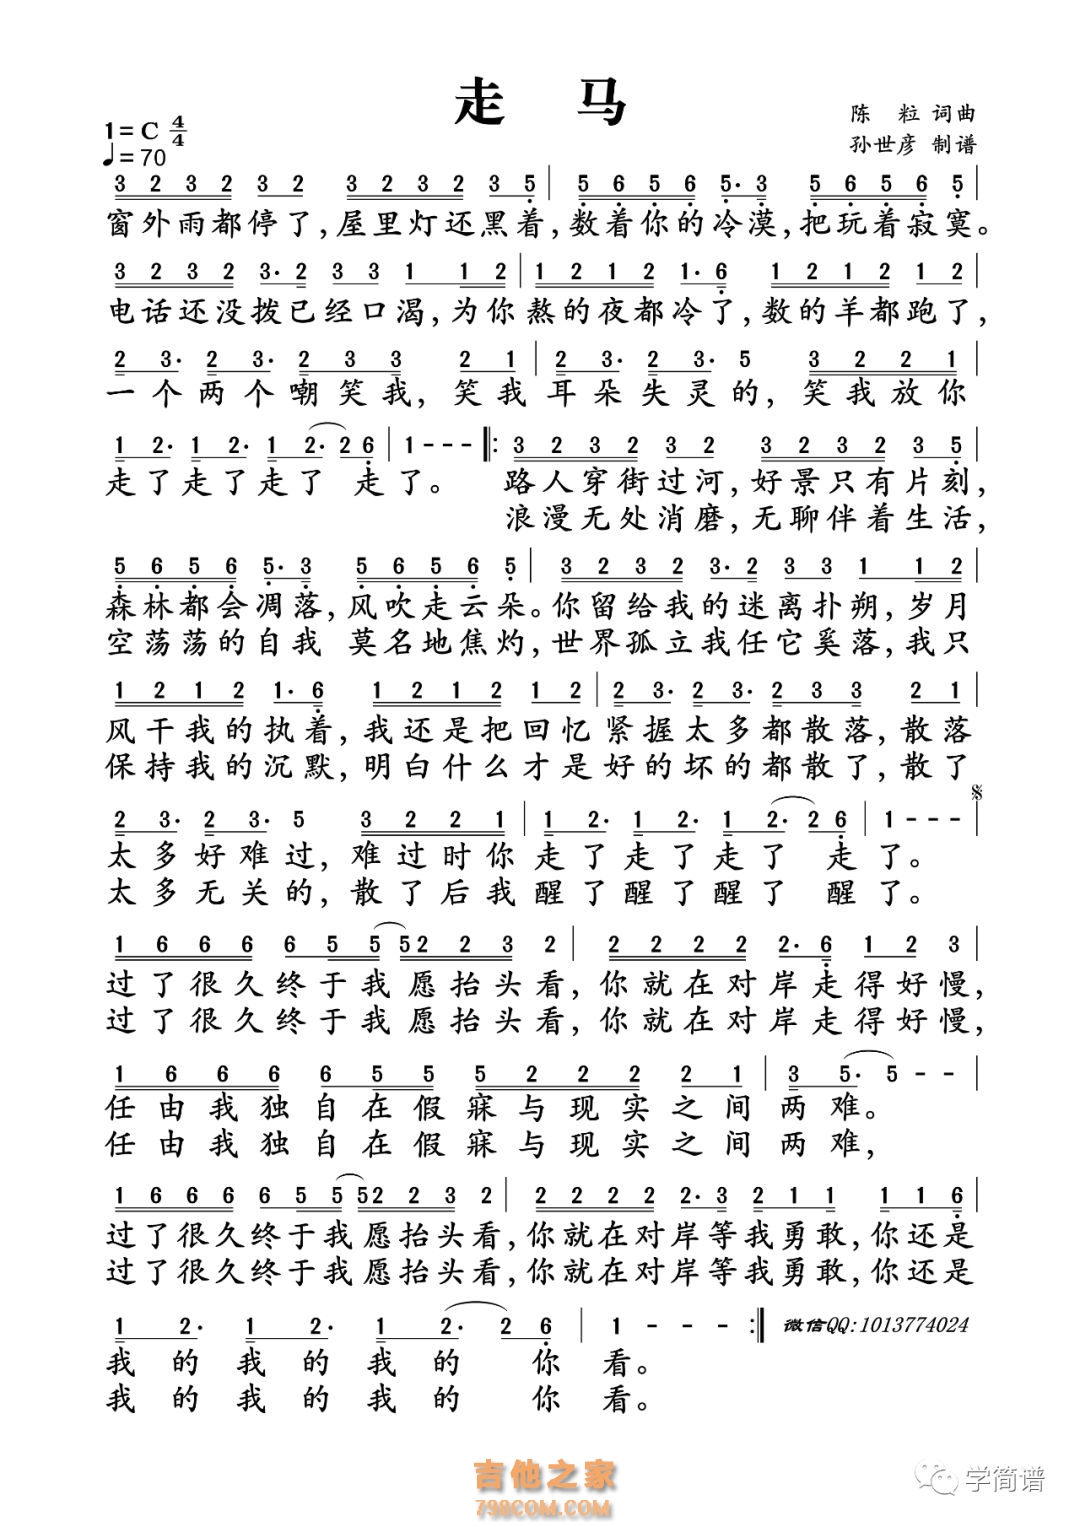 走 马
陈 粒 词曲
孙世彦 制谱
1=C 4/4
♩=70
3 2 3 2 3 2 3 2 3 2 3 5 | 5 6 5 6 5· 3 5 6 5 6 5 |
窗外雨都停了,屋里灯还黑着,数着你的冷漠,把玩着寂寞。
3 2 3 2 3· 2 3 3 1 1 2 | 1 2 1 2 1· 6 1 2 1 2 1 2 |
电话还没拨已经口渴,为你熬的夜都冷了,数的羊都跑了,
2 3· 2 3· 2 3 3 2 1 | 2 3· 2 3· 5 3 2 2 1 |
一个两个嘲笑我,笑我耳朵失灵的,笑我放你
1 2· 1 2· 1 2· 2 6 | 1 - - - ‖: 3 2 3 2 3 2 3 2 3 2 3 5 |
走了走了走了 走了。 路人穿街过河,好景只有片刻,
浪漫无处消磨,无聊伴着生活,
5 6 5 6 5· 3 5 6 5 6 5 | 3 2 3 2 3· 2 3 3 1 1 2 |
森林都会凋落,风吹走云朵。你留给我的迷离扑朔,岁月
空荡荡的自我 莫名地焦灼,世界孤立我任它奚落,我只
1 2 1 2 1· 6 1 2 1 2 1 2 | 2 3· 2 3· 2 3 3 2 1 |
风干我的执着,我还是把回忆紧握太多都散落,散落
保持我的沉默,明白什么才是好的坏的都散了,散了
2 3· 2 3· 5 3 2 2 1 | 1 2· 1 2· 1 2· 2 6 | 1 - - - |
太多好难过,难过时你走了走了走了 走了。
太多无关的,散了后我醒了醒了醒了 醒了。
1 6 6 6 6 5 5 5 2 2 3 2 | 2 2 2 2 2· 6 1 2 3 |
过了很久终于我愿抬头看,你就在对岸走得好慢,
过了很久终于我愿抬头看,你就在对岸走得好慢,
1 6 6 6 6 5 5 5 2 2 2 2 1 | 3 5· 5 - - |
任由我独自在假寐与现实之间两难。
任由我独自在假寐与现实之间两难,
1 6 6 6 6 5 5 5 2 2 3 2 | 2 2 2 2 2· 3 2 1 1 1 1 6 |
过了很久终于我愿抬头看,你就在对岸等我勇敢,你还是
过了很久终于我愿抬头看,你就在对岸等我勇敢,你还是
1 2· 1 2· 1 2· 2 6 | 1 - - - :‖ 微信QQ:1013774024
我的我的我的 你看。
我的我的我的 你看。
吉他之家
798COM.COM
学简谱